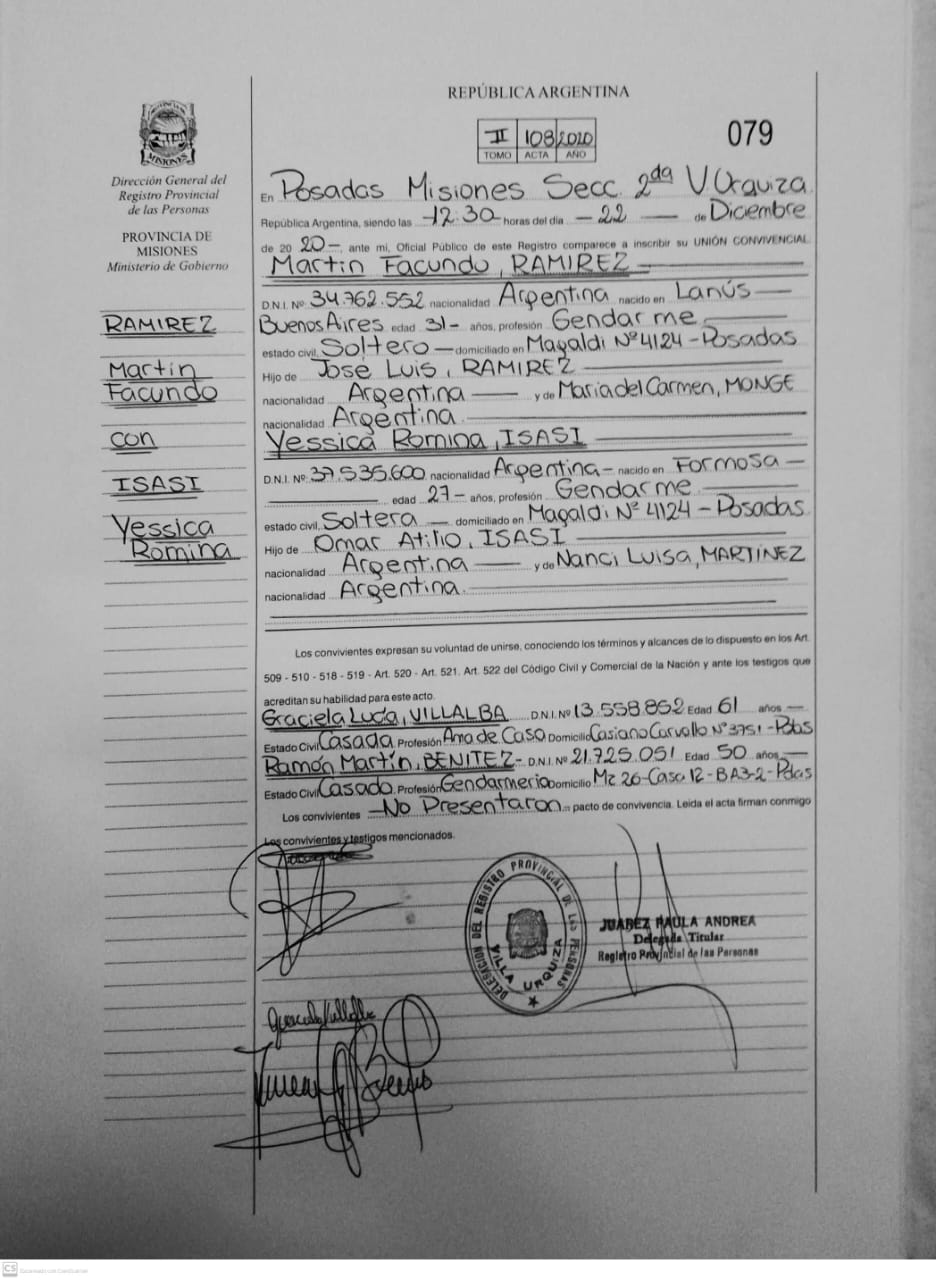 REPÚBLICA ARGENTINA
II 108 2020
TOMO ACTA AÑO
079
MISIONES
Dirección General del
Registro Provincial
de las Personas
PROVINCIA DE
MISIONES
Ministerio de Gobierno
RAMIREZ
Martin
Facundo
con
ISASI
Yessica
Romina
En Posadas Misiones Secc. 2da V. Urquiza
República Argentina, siendo las -12:30 horas del día - 22 — de Diciembre
de 20 20-, ante mi, Oficial Público de este Registro comparece a inscribir su UNIÓN CONVIVENCIAL
Martin Facundo, RAMIREZ
D.N.I. Nº 34.762.552 nacionalidad Argentina nacido en Lanús —
Buenos Aires edad 31- años, profesión Gendarme
estado civil, Soltero — domiciliado en Magaldi Nº 4124 - Posadas
Hijo de José Luis, RAMIREZ
nacionalidad Argentina — y de Maria del Carmen, MONGE
nacionalidad Argentina.
Yessica Romina, ISASI
D.N.I. Nº 37.535.600 nacionalidad Argentina - nacido en Formosa —
edad 27- años, profesión Gendarme
estado civil, Soltera — domiciliado en Magaldi Nº 4124 - Posadas
Hijo de Omar Atilio, ISASI
nacionalidad Argentina — y de Nanci Luisa, MARTINEZ
nacionalidad Argentina.
Los convivientes expresan su voluntad de unirse, conociendo los términos y alcances de lo dispuesto en los Art.
509 - 510 - 518 - 519 - Art. 520 - Art. 521. Art. 522 del Código Civil y Comercial de la Nación y ante los testigos que
acreditan su habilidad para este acto.
Graciela Lucia, VILLALBA D.N.I. Nº 13.558.852 Edad 61 años —
Estado Civil Casada Profesión Ama de Casa Domicilio Casiano Carvallo Nº 3751 - Pdas
Ramón Martín, BENITEZ - D.N.I. Nº 21.725.051 Edad 50 años —
Estado Civil Casado. Profesión Gendarmeria Domicilio Mz 26 - Casa 12 - BA3-2 - Pdas
Los convivientes — No Presentaron pacto de convivencia. Leida el acta firman conmigo
Los convivientes y testigos mencionados.
DELEGACION DEL REGISTRO PROVINCIAL DE LAS PERSONAS
VILLA URQUIZA
JUAREZ PAULA ANDREA
Delegada Titular
Registro Provincial de las Personas
Graciela Villalba
CS Escaneado con CamScanner